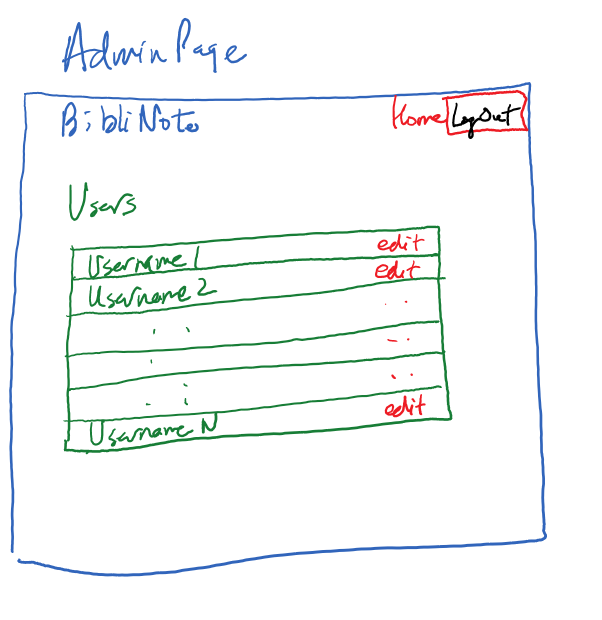 Admin Page
BibliNote Home LogOut
Users
Username 1 edit
Username 2 edit
Username N edit